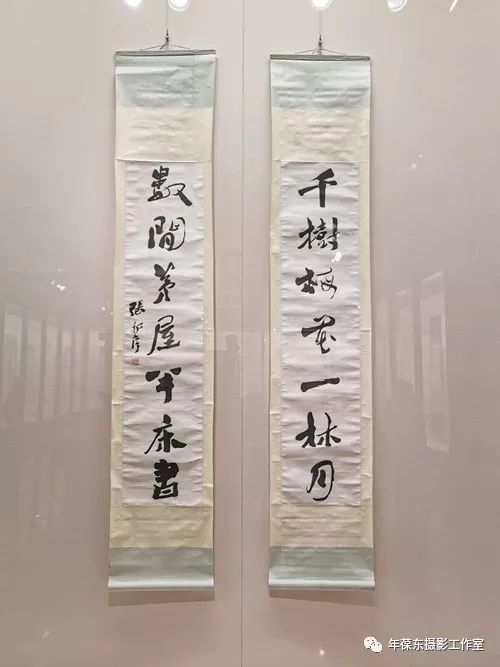 千樹梅花一林月
數間茅屋半床書
張
年葆东摄影工作室